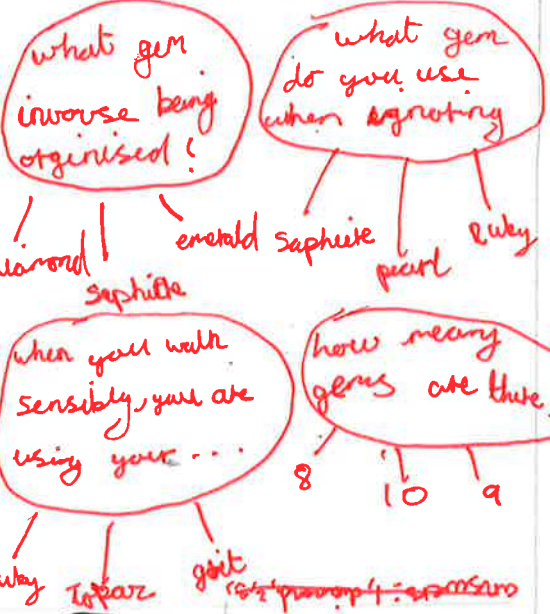 what gem
invouse being
orginised?
diamond
saphitte
emerald
what gem
do you use
when ignoring
saphiite
pearl
Ruby
when you walk
sensibly, you are
using your ...
ruby
Topaz
how meany
gems are there
8
10
9